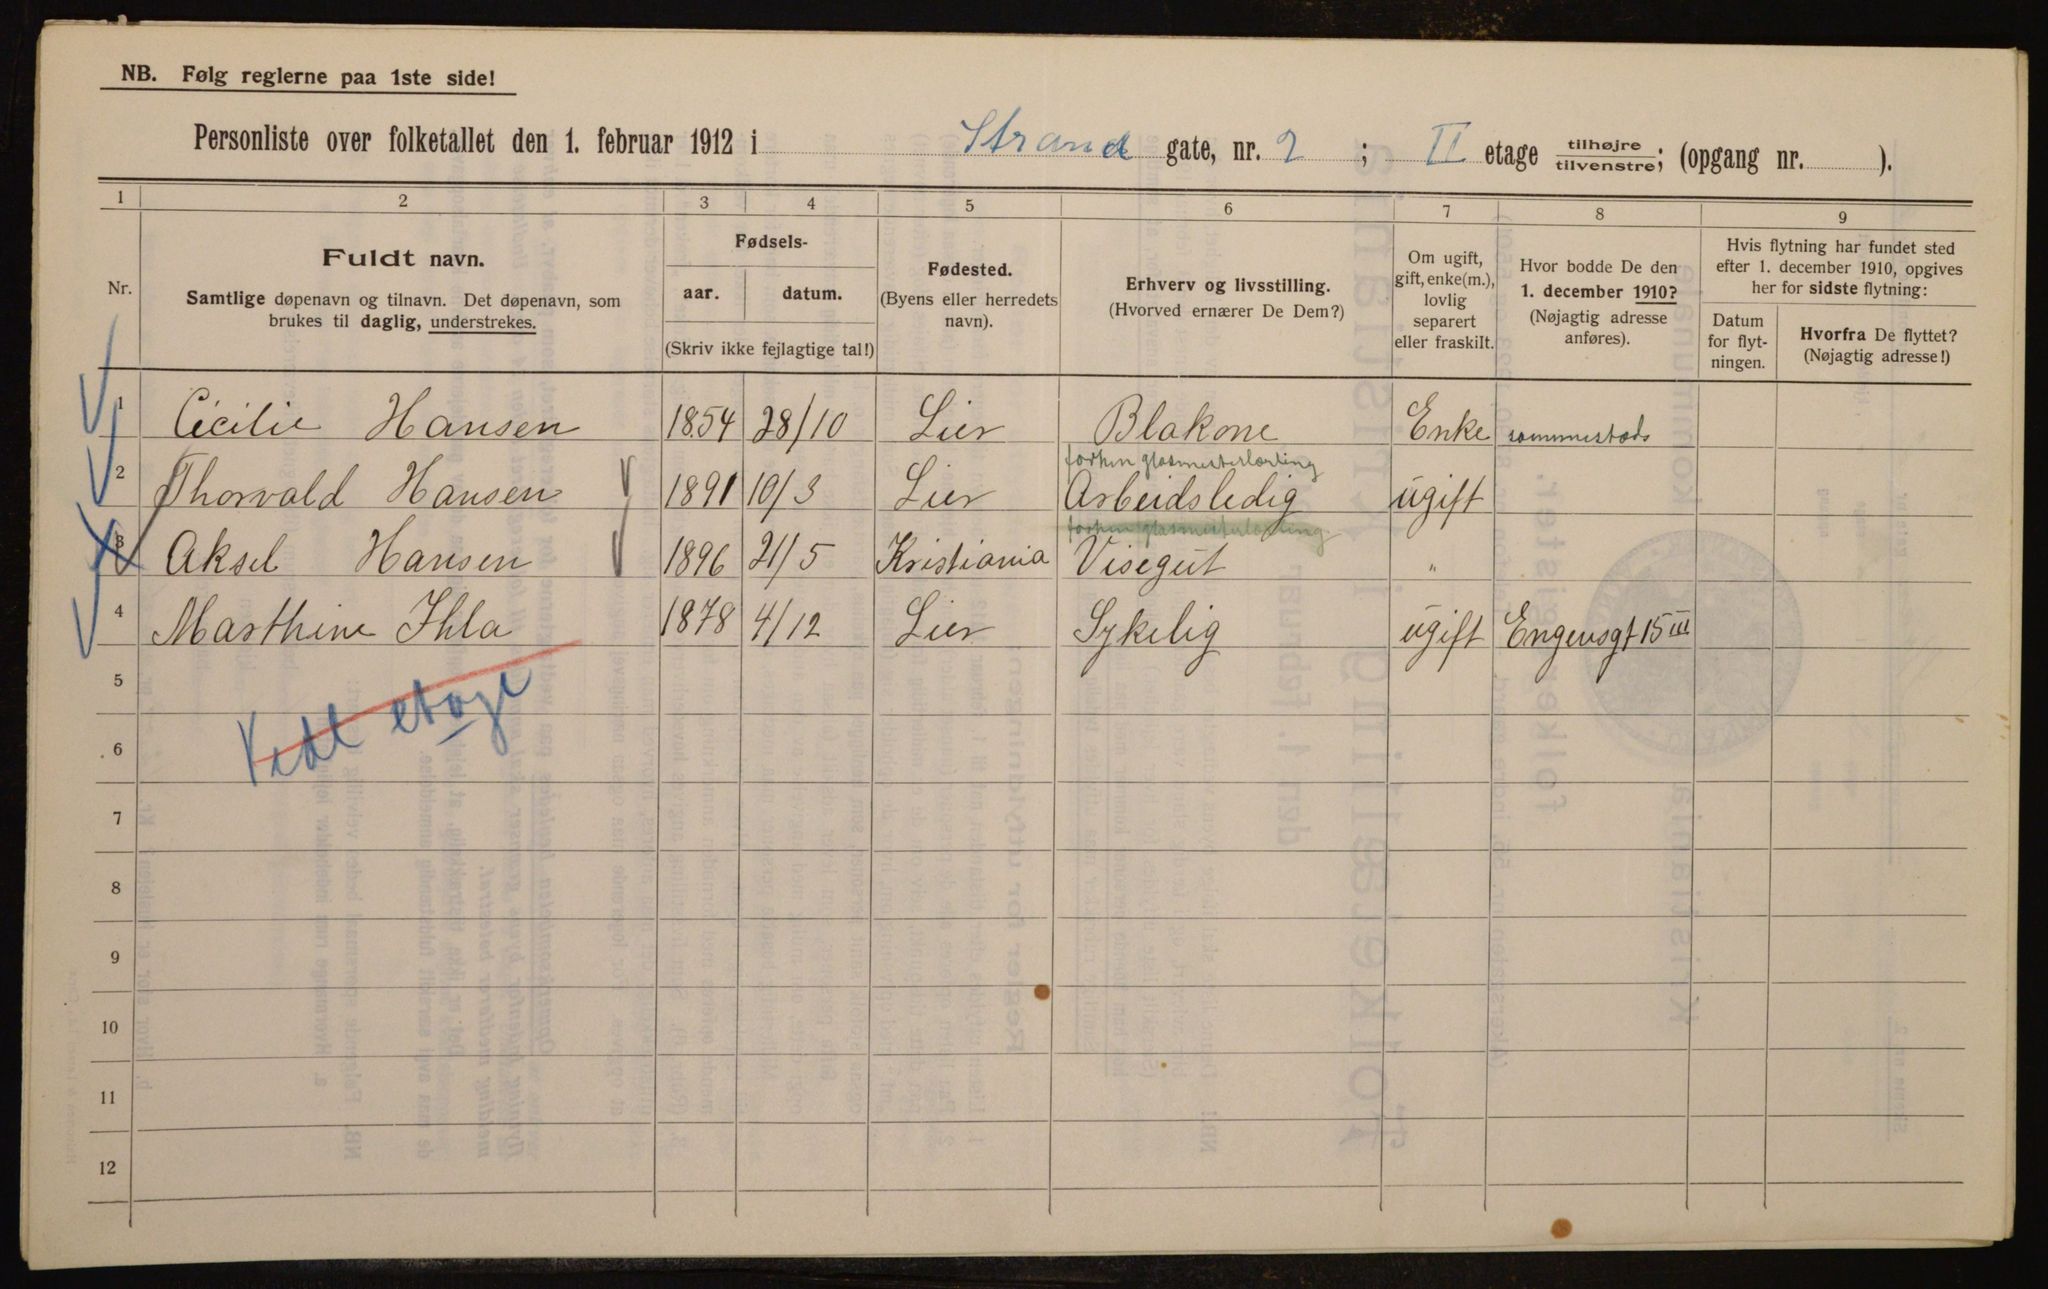 NB. Følg reglerne paa 1ste side!
Personliste over folketallet den 1. februar 1912 i Strand gate, nr. 2 ; II etage tilhøjre/tilvenstre; (opgang nr. ).
1 2 3 4 5 6 7 8 9
Nr.
Fuldt navn.
Samtlige døpenavn og tilnavn. Det døpenavn, som
brukes til daglig, understrekes.
Fødsels-
aar. datum.
(Skriv ikke fejlagtige tal!)
Fødested.
(Byens eller herredets
navn).
Erhverv og livsstilling.
(Hvorved ernærer De Dem?)
Om ugift,
gift, enke(m.),
lovlig
separert
eller fraskilt.
Hvor bodde De den
1. december 1910?
(Nøjagtig adresse
anføres).
Hvis flytning har fundet sted
efter 1. december 1910, opgives
her for sidste flytning:
Datum
for flyt-
ningen.
Hvorfra De flyttet?
(Nøjagtig adresse!)
1 Cecilie Hansen 1854 28/10 Lier Blakone Enke sammesteds
forhen glasmesterlærling
2 Thorvald Hansen 1891 10/3 Lier Arbeidsledig ugift
forhen glasmesterlærling
3 Aksel Hansen 1896 21/5 Kristiania Visegut "
4 Marthine Ihla 1878 4/12 Lier Sykelig ugift Engensgt 15 III
5
etage
6
7
8
9
10
11
12